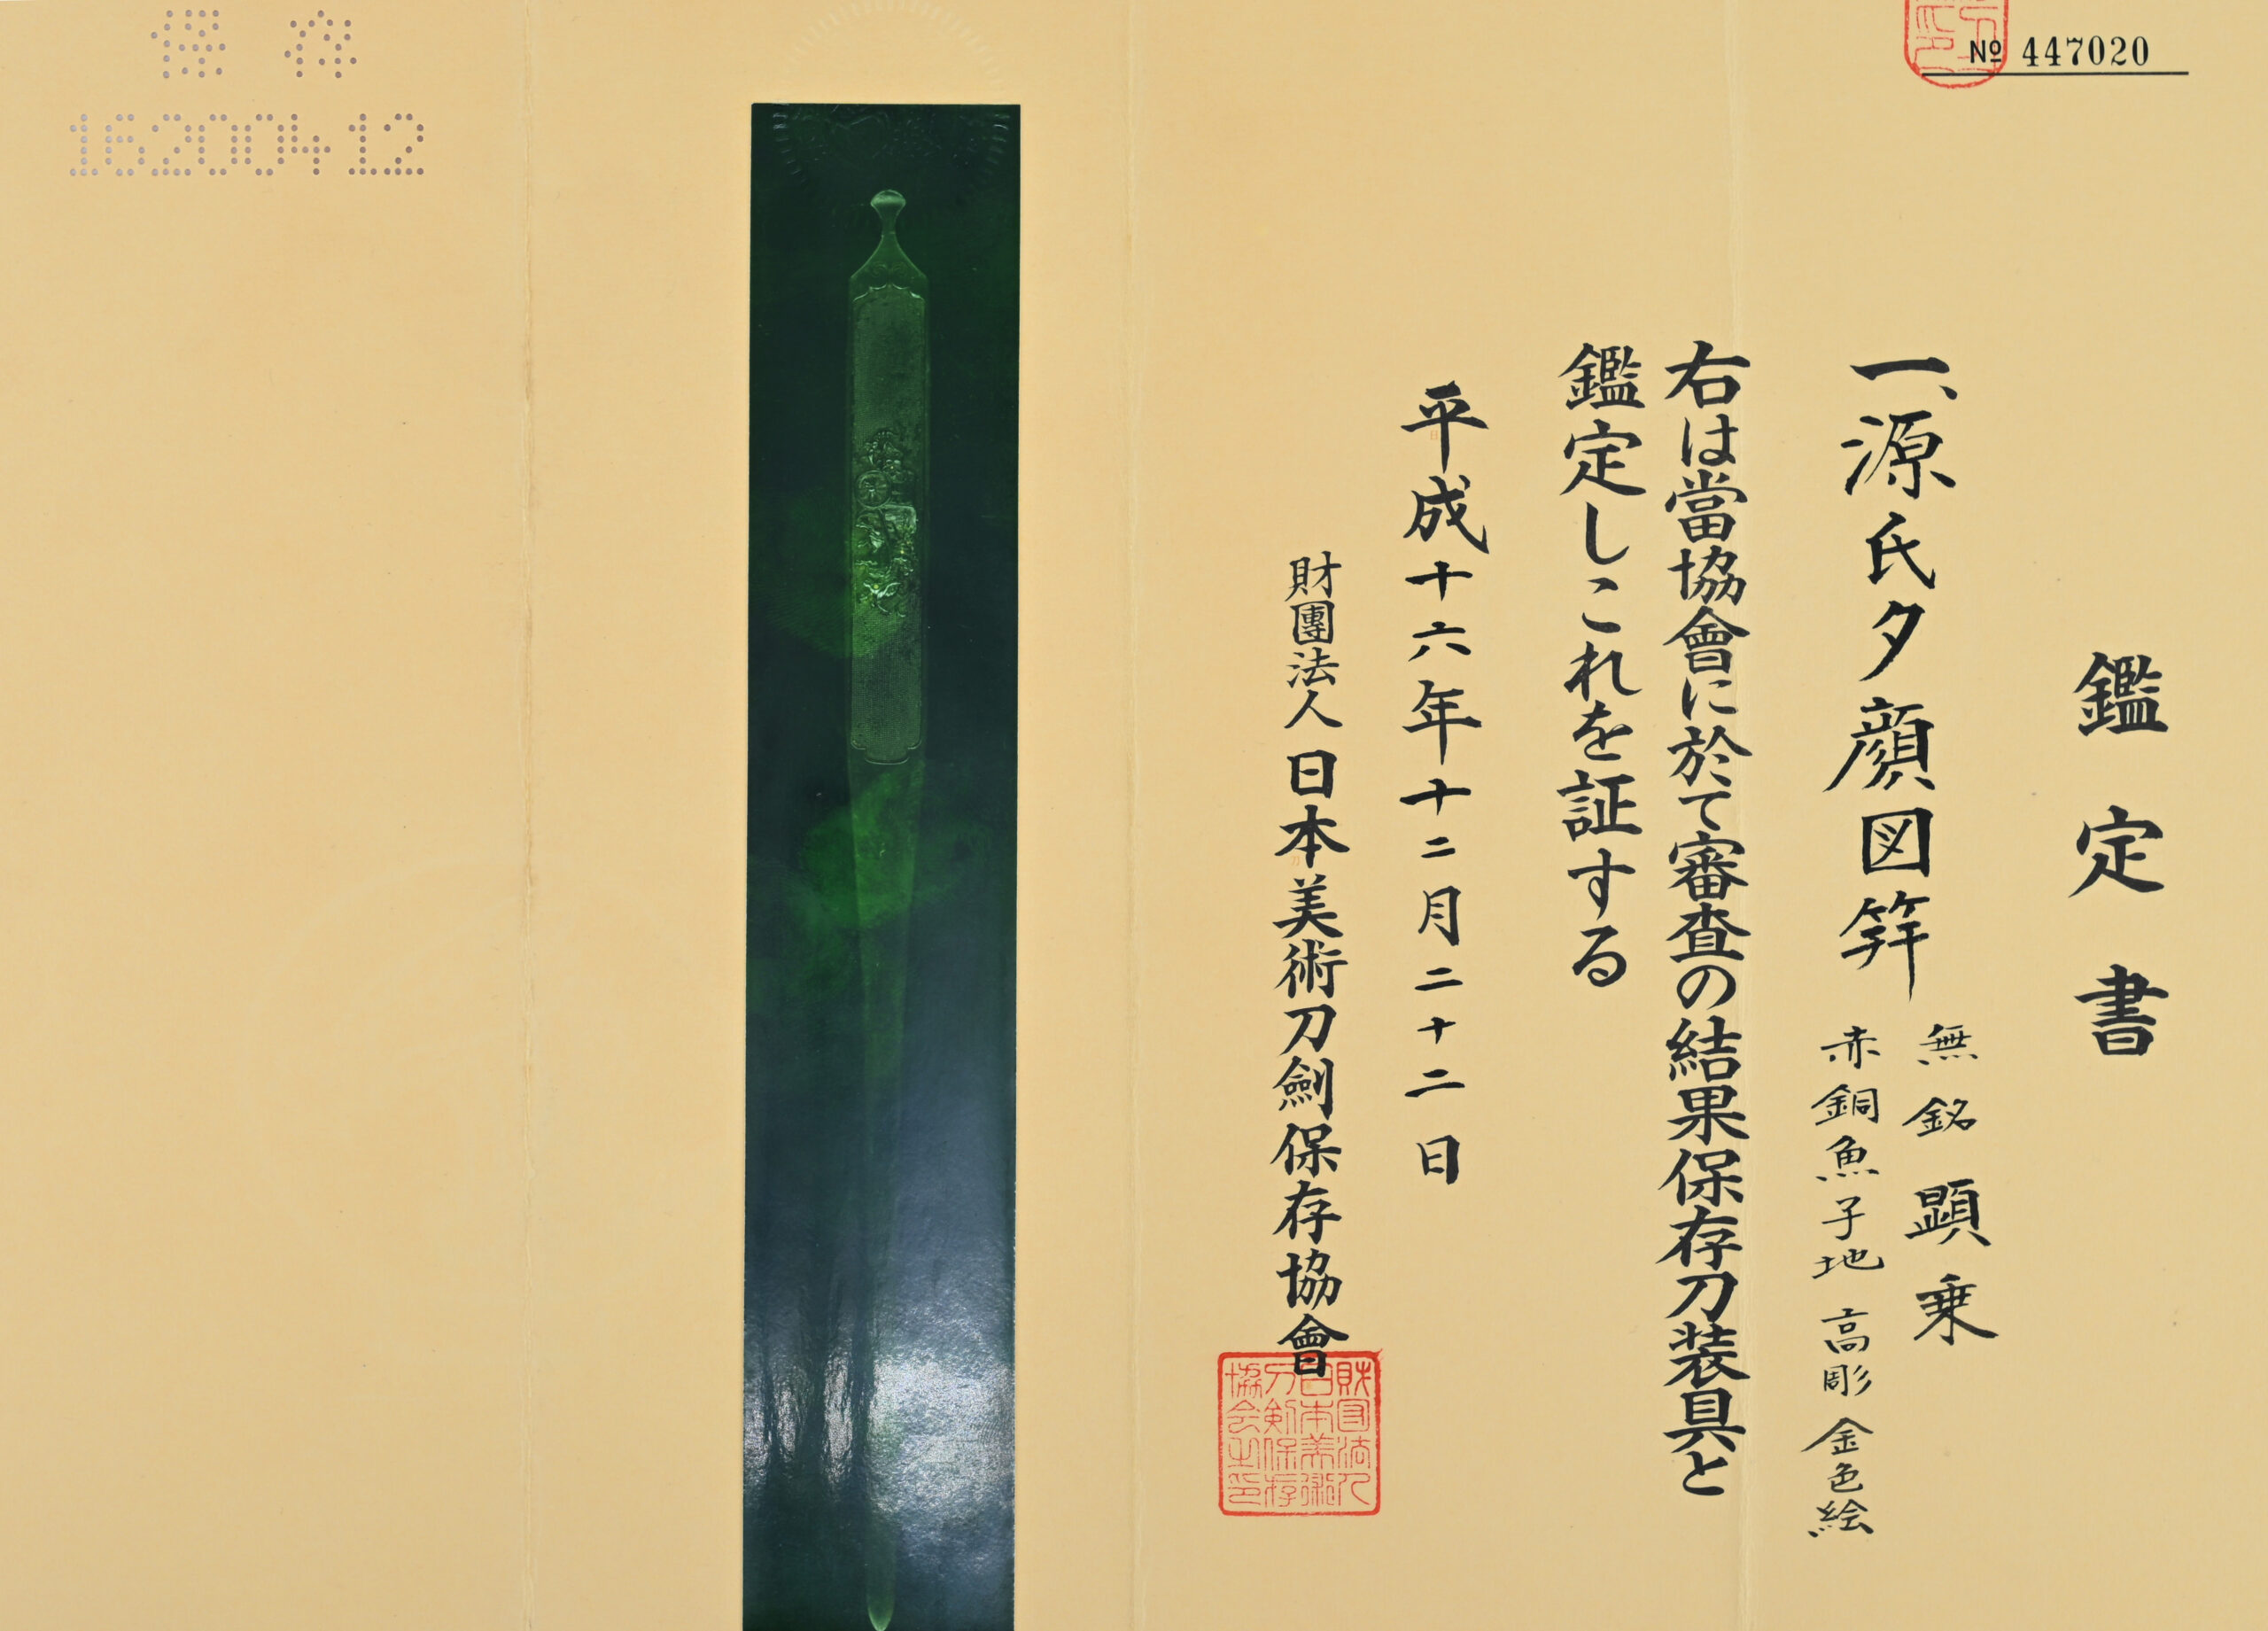 № 447020
鑑定書
一、源氏夕顔図笄
無銘 顕乗
赤銅魚子地 高彫 金色絵
右は當協會に於て審査の結果保存刀装具と
鑑定しこれを証する
平成十六年十二月二十二日
財團法人 日本美術刀劍保存協會
財団法人
日本美術
刀剣保存
協会之印
保存
16200412